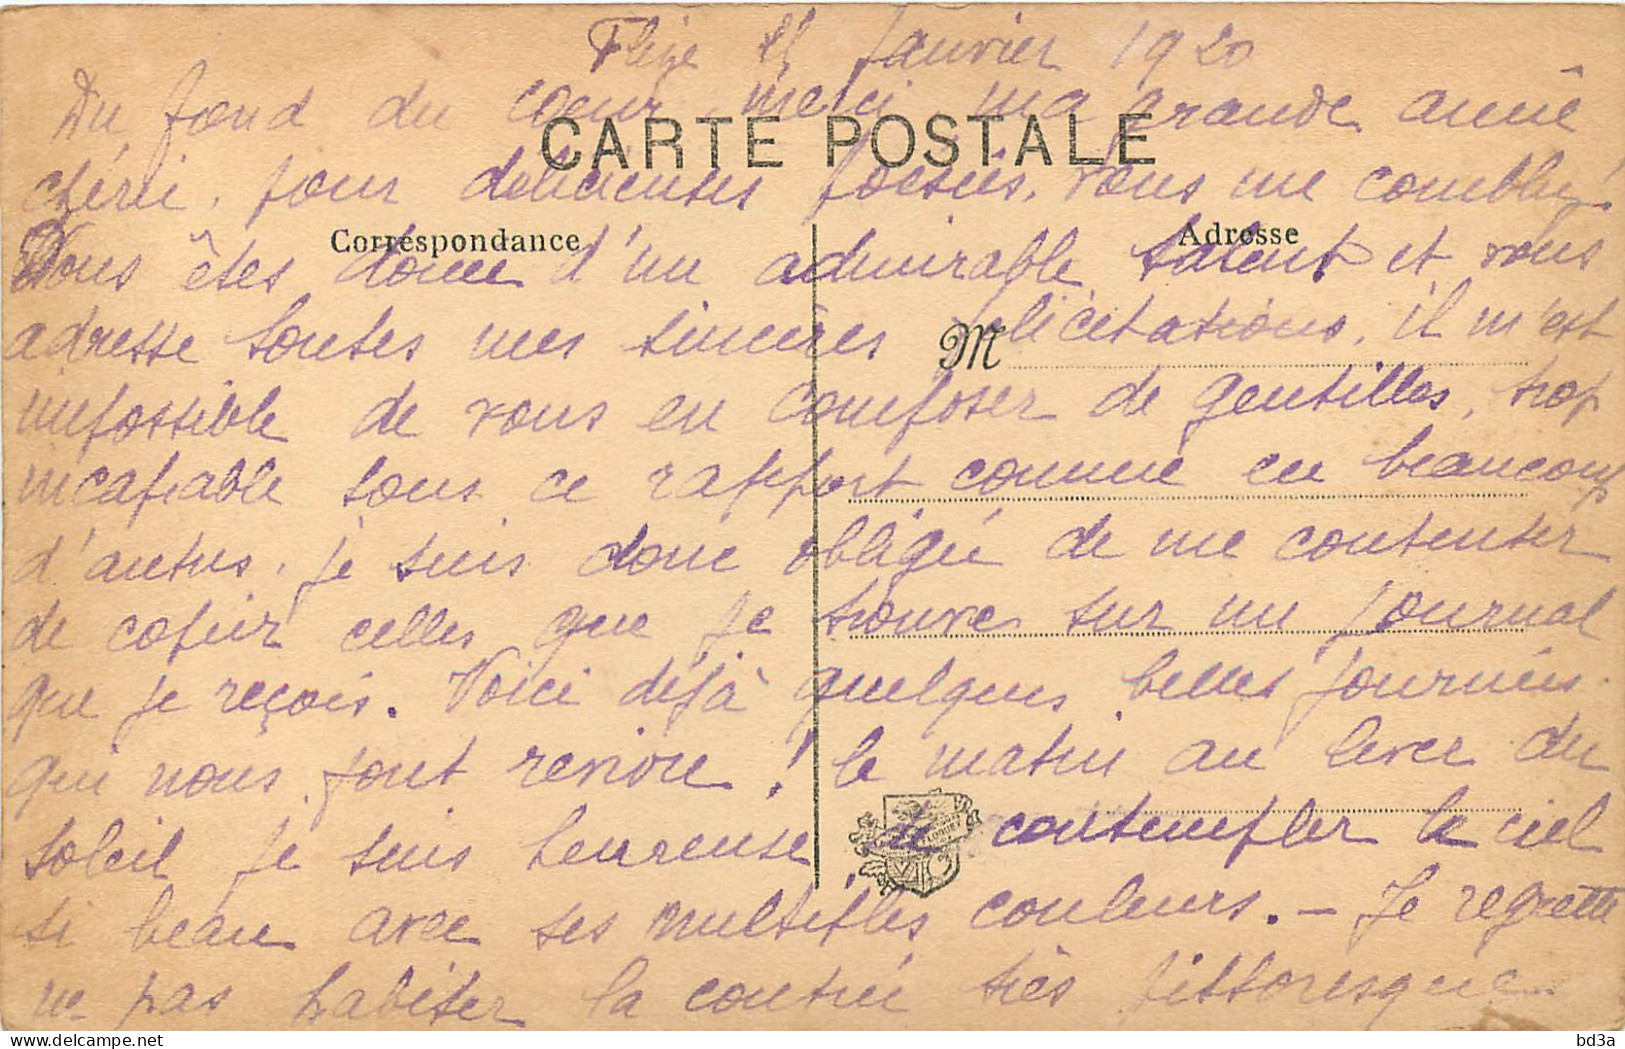 Flize janvier 1920
Du fond du cœur merci ma grande amie
CARTE POSTALE
chérie, pour délicieuses poésies, vous me comblez!
Correspondance
Adresse
Vous êtes douée d'un admirable talent et vous
adresse toutes mes sincères félicitations, il m'est
M
impossible de vous en composer de gentilles, trop
incapable sous ce rapport comme en beaucoup
d'autres, je suis donc obligée de me contenter
de copier celles que je trouve sur un journal
que je reçois. Voici déjà quelques belles journées
qui nous font revivre! le matin au lever du
soleil je suis heureuse de contempler le ciel
si beau avec ses multiples couleurs. - Je regrette
ne pas habiter la contrée très pittoresque
bd3a